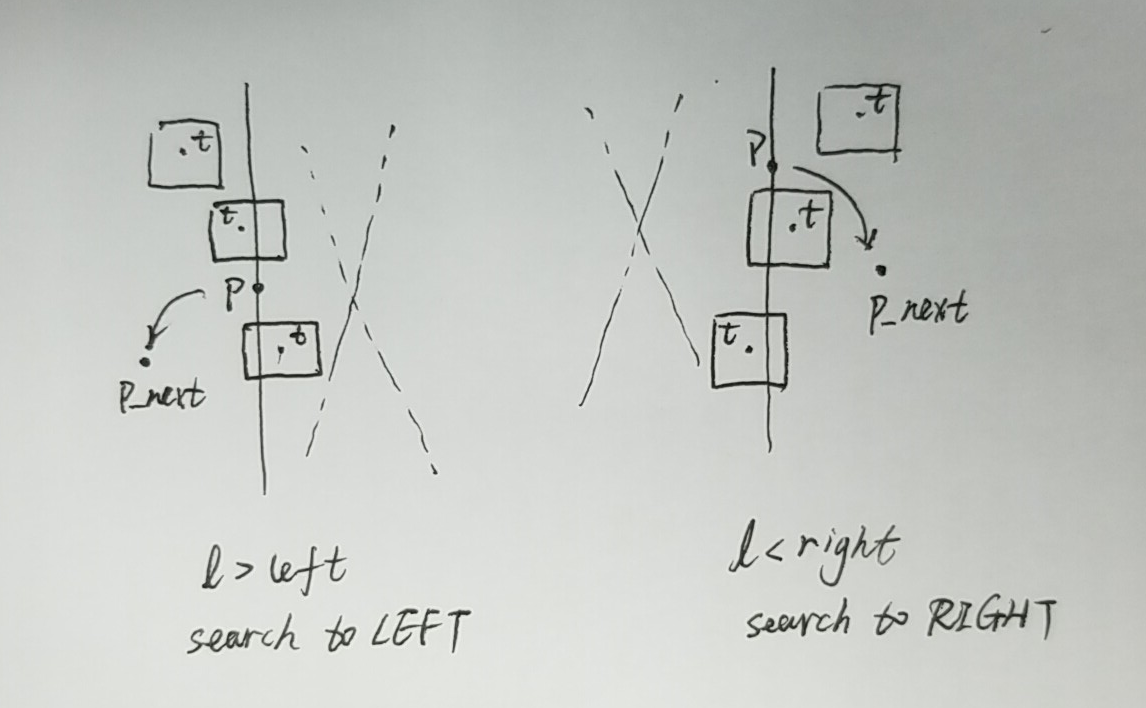 t
t
P
t
P_next
l > left
search to LEFT
t
P
t
P_next
t
l < right
search to RIGHT